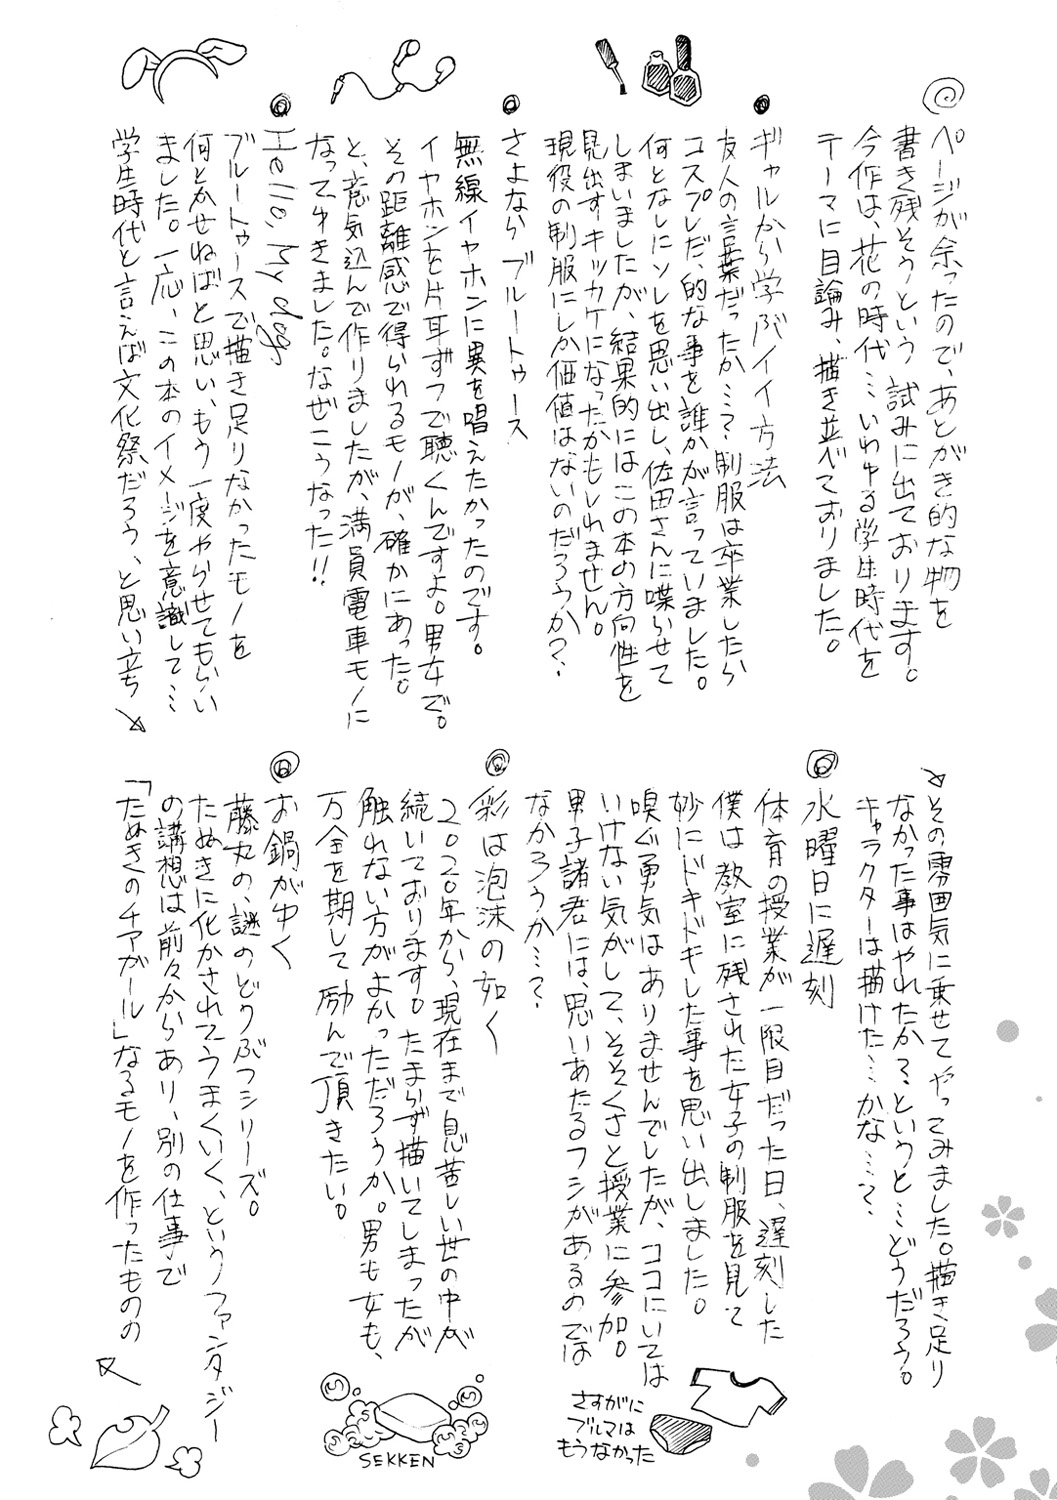 ページが余ったので、あとがき的な物を
書き残そうという試みに出ております。
今作は、花の時代…いわゆる学生時代を
テーマに目論み、描き並べておりました。
ギャルから学ぶイイ方法
友人の言葉だったか…？制服は卒業したら
コスプレだ、的な事を誰かが言っていました。
何となしにソレを思い出し、佐田さんに喋らせて
しまいましたが、結果的にはこの本の方向性を
見出すキッカケになったかもしれません。
現役の制服にしか価値はないのだろうか？
さよならブルートゥース
無線イヤホンに異を唱えたかったのです。
イヤホンを片耳ずつで聴くんですよ。男女で。
その距離感で得られるモノが、確かにあった。
と、意気込んで作りましたが、満員電車モノに
なってゆきました。なぜこうなった!!
Hello, My dog,
ブルートゥースで描き足りなかったモノを
何とかせねばと思い、もう一度やらせてもらい
ました。一応、この本のイメージを意識して…
学生時代と言えば文化祭だろう、と思い立ち
その雰囲気に乗せてやってみました。描き足り
なかった事はやれたかろ、というと…どうだろう。
キャラクターは描けた…かな…？
水曜日に遅刻
体育の授業が一限目だった日、遅刻した
僕は教室に残された女子の制服を見て
妙にドキドキした事を思い出しました。
嗅ぐ勇気はありませんでしたが、ココにいては
いけない気がして、そそくさと授業に参加。
男子諸君には、思いあたるフシがあるのでは
なかろうか…？
さすがに
ブルマは
もうなかった
彩は泡沫の如く
2020年から、現在まで息苦しい世の中が
続いております。たまらず描いてしまったが
触れない方がよかっただろうか。男も女も、
万全を期して励んで頂きたい。
SEKKEN
お鍋がゆく
藤丸の、謎のどうぶつシリーズ。
たぬきに化かされてうまくいく、というファンタジー
の講想は前々からあり、別の仕事で
「たぬきのチアガール」なるモノを作ったものの